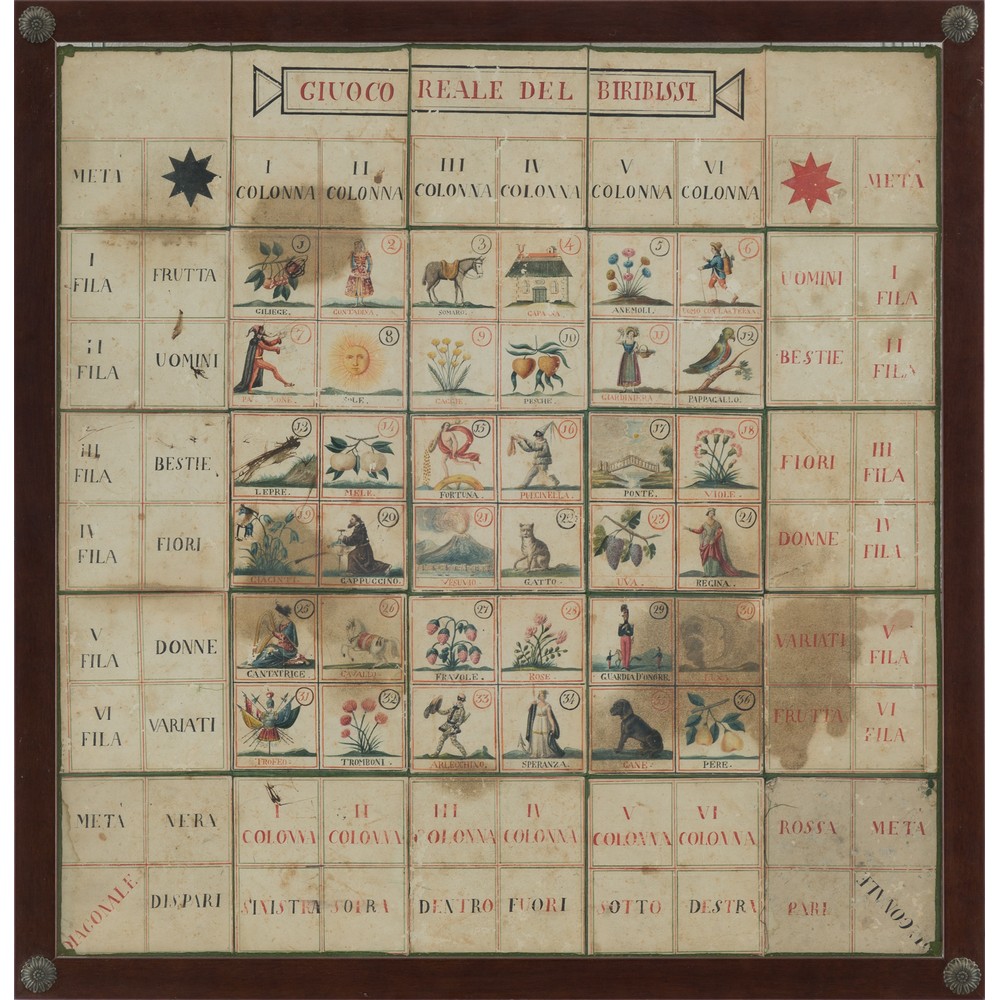 GIUOCO REALE DEL BIRIBISSI
META
I COLONNA
II COLONNA
III COLONNA
IV COLONNA
V COLONNA
VI COLONNA
META
I FILA
FRUTTA
1
GILIEGE.
2
CONTADINA.
3
SOMARO.
4
CAPANNA
5
ANEMOLI.
6
UOMINI
I FILA
II FILA
UOMINI
7
8
SOLE.
9
GAGGIE.
10
PERCHE.
11
GIARDINIERA.
12
PAPPAGALLO.
BESTIE
II FILA
III FILA
BESTIE
13
LEPRE.
14
MELE.
15
FORTUNA.
16
PULCINELLA.
17
PONTE.
18
VIOLE.
FIORI
III FILA
IV FILA
FIORI
19
GIACINTI.
20
CAPPUCCINO.
21
VESUVIO.
22
GATTO.
23
UVA.
24
REGINA.
DONNE
IV FILA
V FILA
DONNE
25
CANTATRICE.
26
CAVALLO.
27
FRAVOLE.
28
ROSE.
29
GUARDIA D'ONORE.
30
VARIATI
V FILA
VI FILA
VARIATI
31
TROFEO.
32
TROMBONI.
33
ARLECCHINO.
34
SPERANZA.
35
CANE.
36
PERE.
FRUTTA
VI FILA
META
NERA
I COLONNA
II COLONNA
III COLONNA
IV COLONNA
V COLONNA
VI COLONNA
ROSSA
META
DIAGONALE
DISPARI
SINISTRA
SOPRA
DENTRO
FUORI
SOTTO
DESTRA
PARI
DIAGONALE